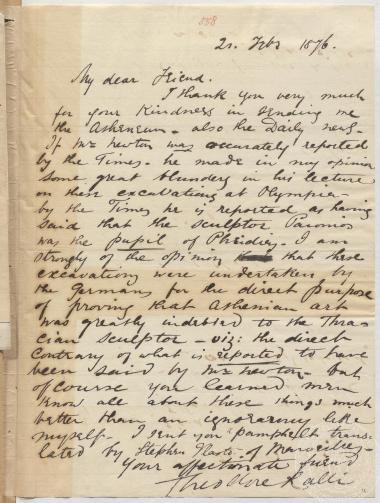 558
21. Feb 1876.
My dear Friend.
I thank you very much
for your Kindness in sending me
the Atheneum - also the Daily news.
If Mr Newton was accurately reported
by the Times - he made in my opinion
some great blunders in his lecture
on these excavations at Olympia -
by the Times he is reported as having
said that the sculptor Paionios
was the pupil of Pheidias. I am
strongly of the opinion that these
excavations were undertaken by
the Germans for the direct purpose
of proving that Athenian art
was greatly indebted to the Thra-
cian sculptor - viz: the direct
contrary of what is reported to have
been said by Mr Newton - but
of course you learned men
know all about these things much
better than an ignoramus like
myself - I sent you pamphlet trans-
lated by Stephen of Marseilles -
Your affectionate friend
Theodore Ralli